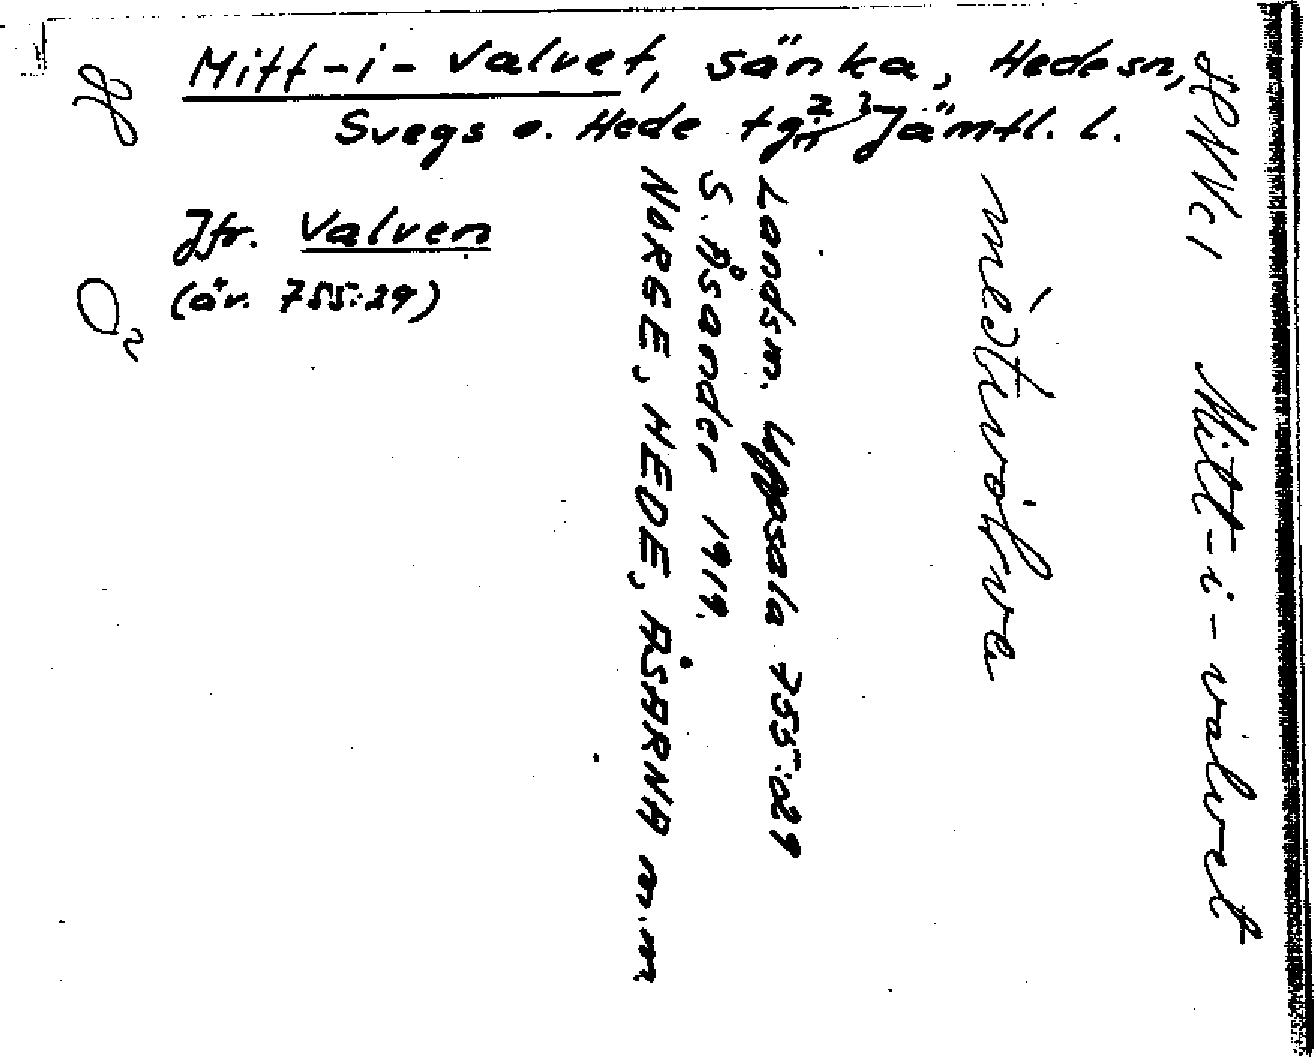 Mitt-i-valvet, sänka, Hede sn,
Svegs o. Hede tgn Jämtl. l.
Jfr. Valven
(äv. 755:29)
HNVc1 Mitt-i-valvet
Landsm. Uppsala 755:029
S. Åsander 1919.
NORGE, HEDE, ÅSARNA m.m